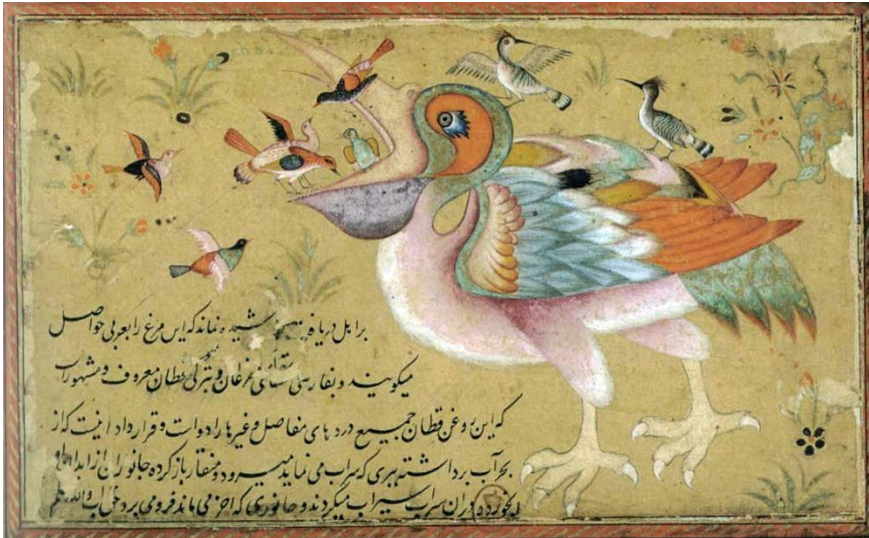 برابل دریا شیده نماند که این مرغ را بعربی حواصل
میکویند و بفارسی سقای مرغان و بترکی قطان معروف و مشهور است
که این روغن قطان جمیع دردهای مفاصل و غیرها را دواست و قرارداد اینست که از
بحر آب برداشته ببری که سراب می نماید میرود و منقار باز کرده جانوران از
سیراب میکردند و جانوری که اخر می ماند فرو می برد والله اعلم